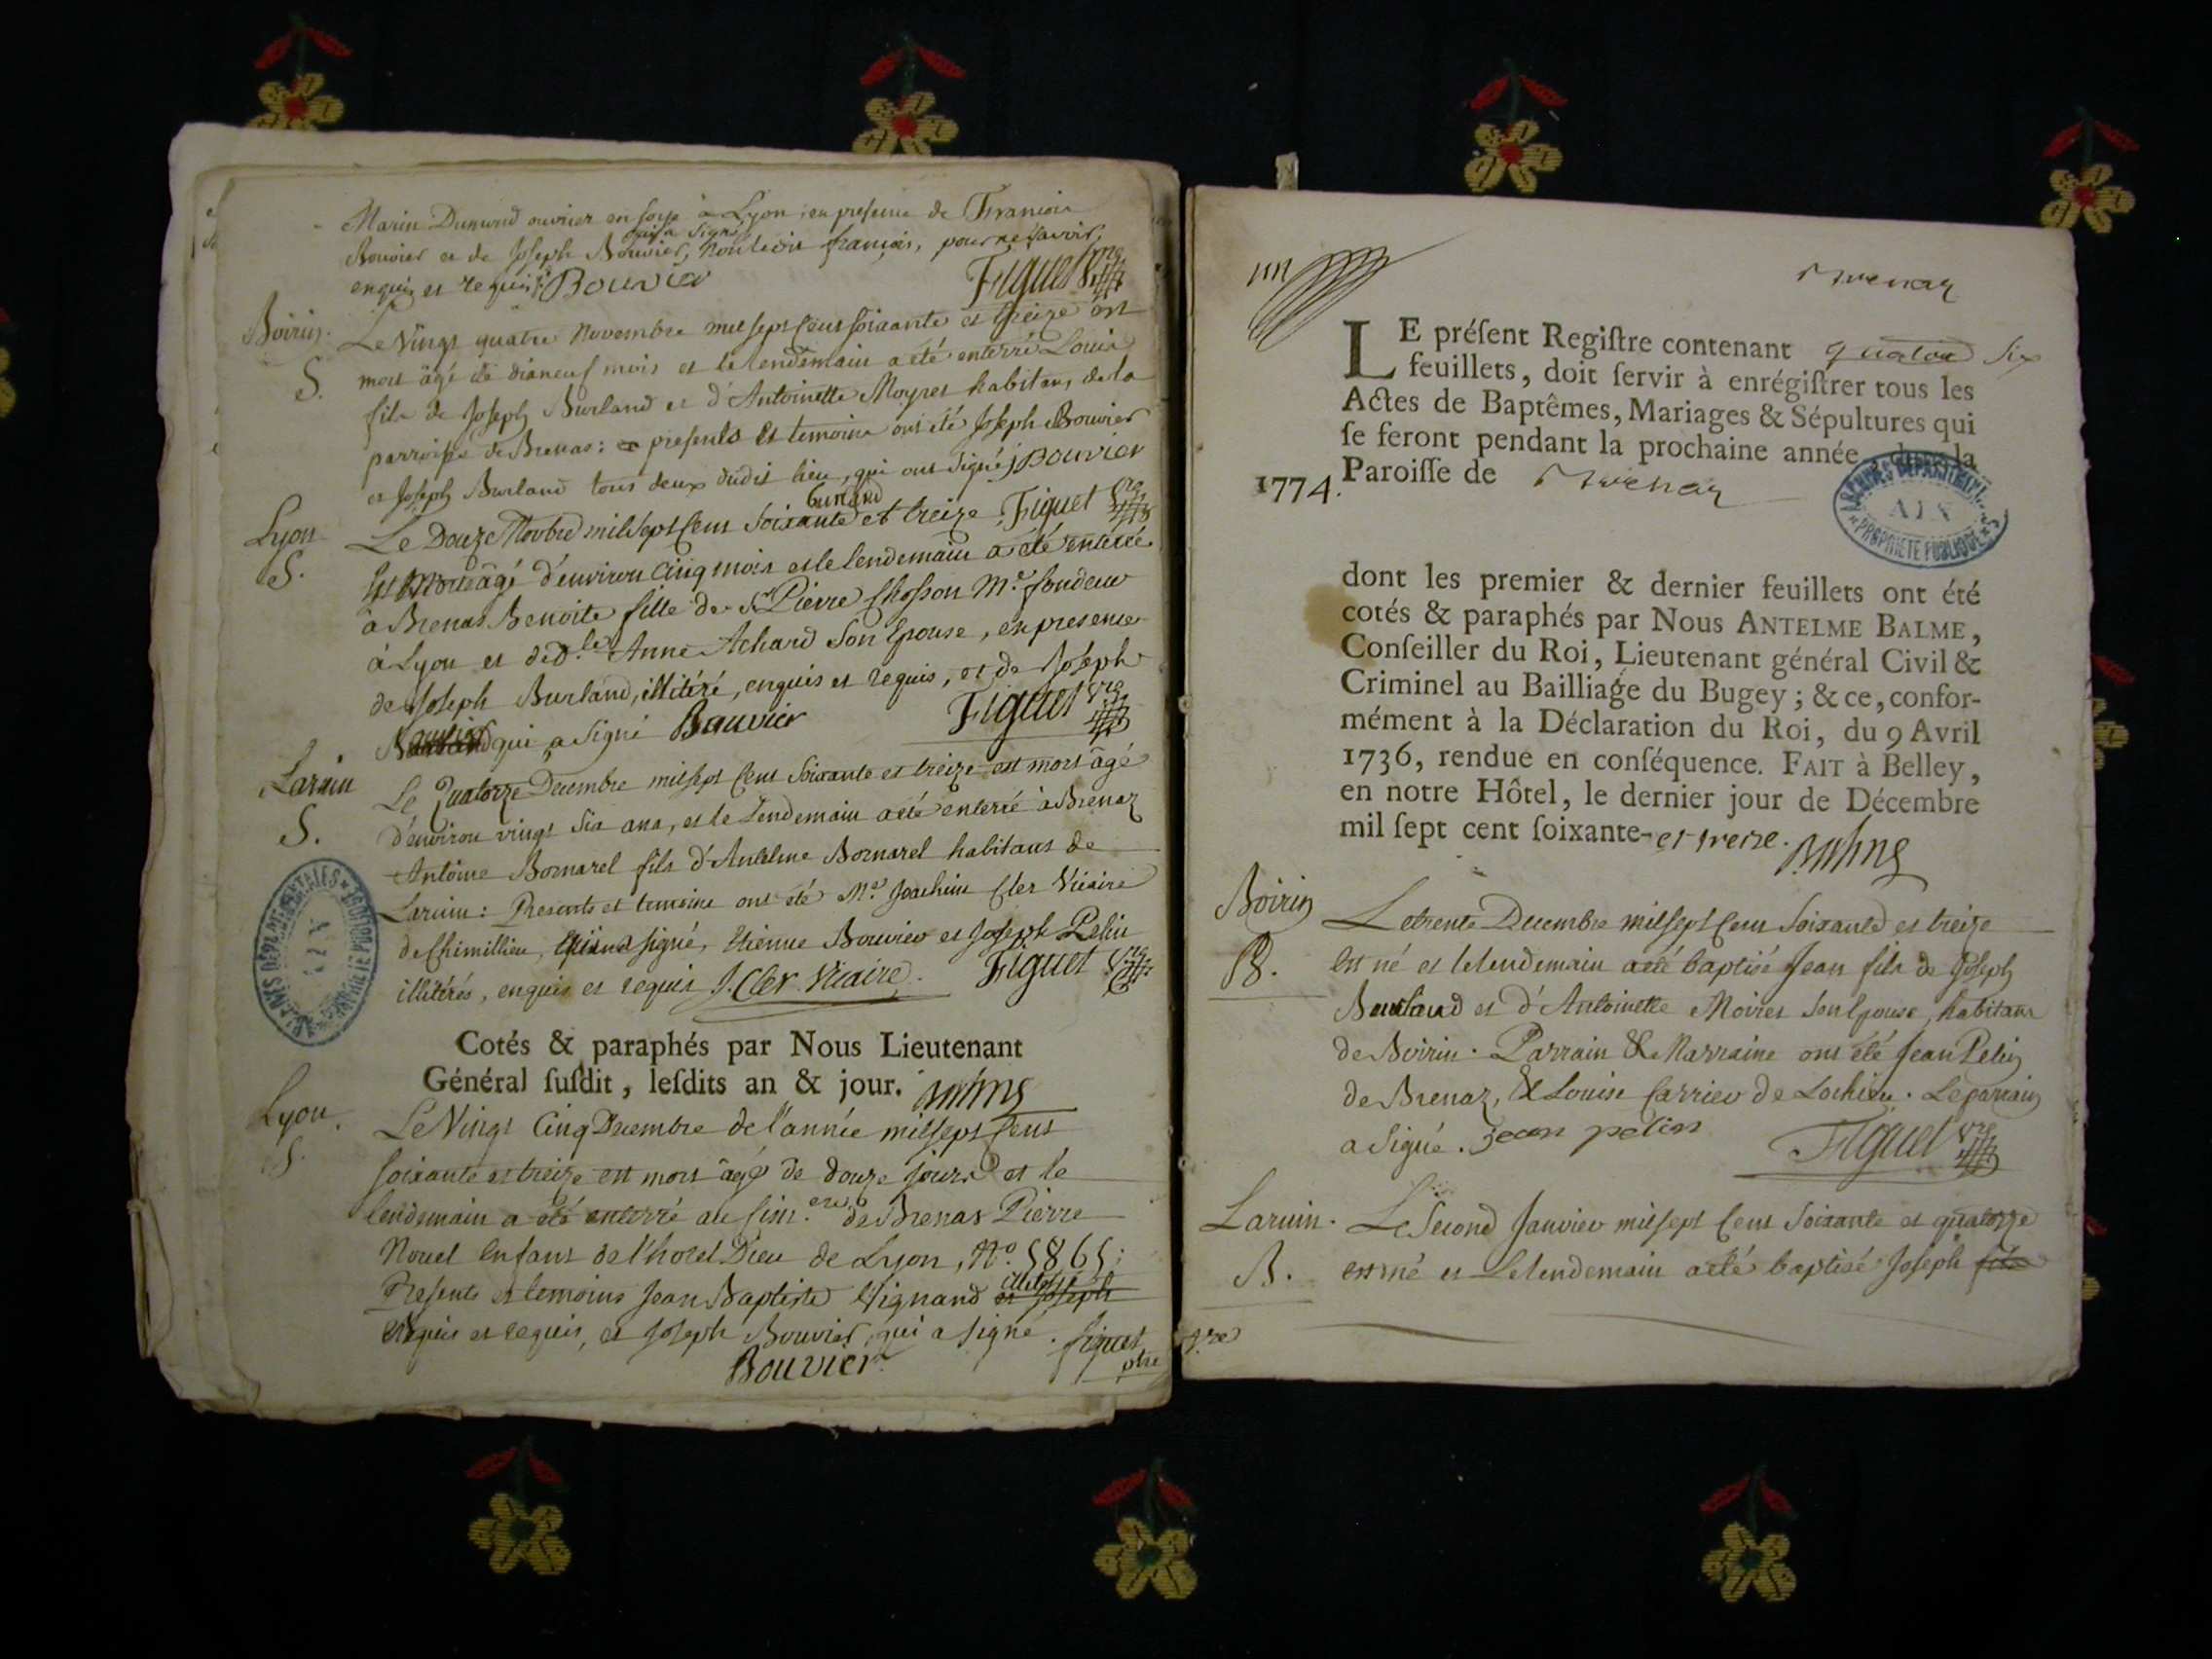 Marin Dumund ouvrier en soye à Lyon, en presence de Francois
Bouvier et de Joseph Bouvier, qui a signé, non ledit françois, pour ne savoir,
enquis et requis. Bouvier Figuet vre
Boirin. Le Vingt quatre Novembre mil sept Cent soixante et treize est
S. mort âgé de dixneuf mois et le lendemain a été enterré Louis
fils de Joseph Burland et d'Antoinette Moyret habitans de la
parroisse de Brenas: presents et temoins ont été Joseph Bouvier
et Joseph Burland tous deux dudit lieu, qui ont signé, J Bouvier
Burland
Lyon Le Douze Novbre mil sept Cent soixante et treize Figuet vre
S. Est morte âgé d'environ cinq mois et le lendemain a été enterrée
à Brenas Benoite fille de Sr Pierre Chosson Me. fondeur
à Lyon et de Dlle Anne Achard son Epouse, en presence
de Joseph Burland, illitéré, enquis et requis, et de Joseph
Bouvier qui a signé Bouvier Figuet vre
Laruin Le Quatorze Decembre mil sept Cent soixante et treize est mort âgé
S. d'environ vingt six ans, et le Lendemain a été enterré à Brenaz
Antoine Bornarel fils d'Antelme Bornarel habitans de
Laruin: Presents et temoins ont été Mre. Joachim Cler Vicaire
de Chimillieu, signé, Etienne Bouvier et Joseph Pelin
illitérés, enquis et requis J. Cler Vicaire. Figuet vre
Cotés & paraphés par Nous Lieutenant
Général ſuſdit, leſdits an & jour. Balme
Lyon. Le Vingt Cinq Decembre de l'année mil sept Cent
S. soixante et treize est mort âgé de douze jours et le
lendemain a été enterré au Sim.ere de Brenas Pierre
Nouel Enfant de l'hotel Dieu de Lyon, No. 5865;
Presents et temoins Jean Baptiste Vignand illiteré et Joseph
enquis et requis, et Joseph Bouvier, qui a signé. figuet
Bouvier ptre vre
Brenaz
LE préſent Regiſtre contenant six
feuillets, doit ſervir à enrégiſtrer tous les
Actes de Baptêmes, Mariages & Sépultures qui
ſe feront pendant la prochaine année dans la
1774. Paroiſſe de Brenaz
ARCHIVES DEPARTEMENTALES
AIN
PROPRIÉTÉ PUBLIQUE
dont les premier & dernier feuillets ont été
cotés & paraphés par Nous ANTELME BALME,
Conſeiller du Roi, Lieutenant général Civil &
Criminel au Bailliage du Bugey; & ce, confor-
mément à la Déclaration du Roi, du 9 Avril
1736, rendue en conſéquence. FAIT à Belley,
en notre Hôtel, le dernier jour de Décembre
mil ſept cent ſoixante-et treize. Balme
Boirin Le trente Decembre mil sept Cent Soixante et treize
B. Est né et le lendemain a été baptisé Jean fils de Joseph
Burland et d'Antoinette Moiret son Epouse, habitans
de Boirin. Parrain & Marraine ont été Jean Pelin
de Brenaz, & Louise Carrier de Lochieu. Le parrain
a signé. jean pelin Figuet vre
Laruin. Le Second Janvier mil sept Cent Soixante et quatorze
B. est né et Le lendemain a été baptisé Joseph fils